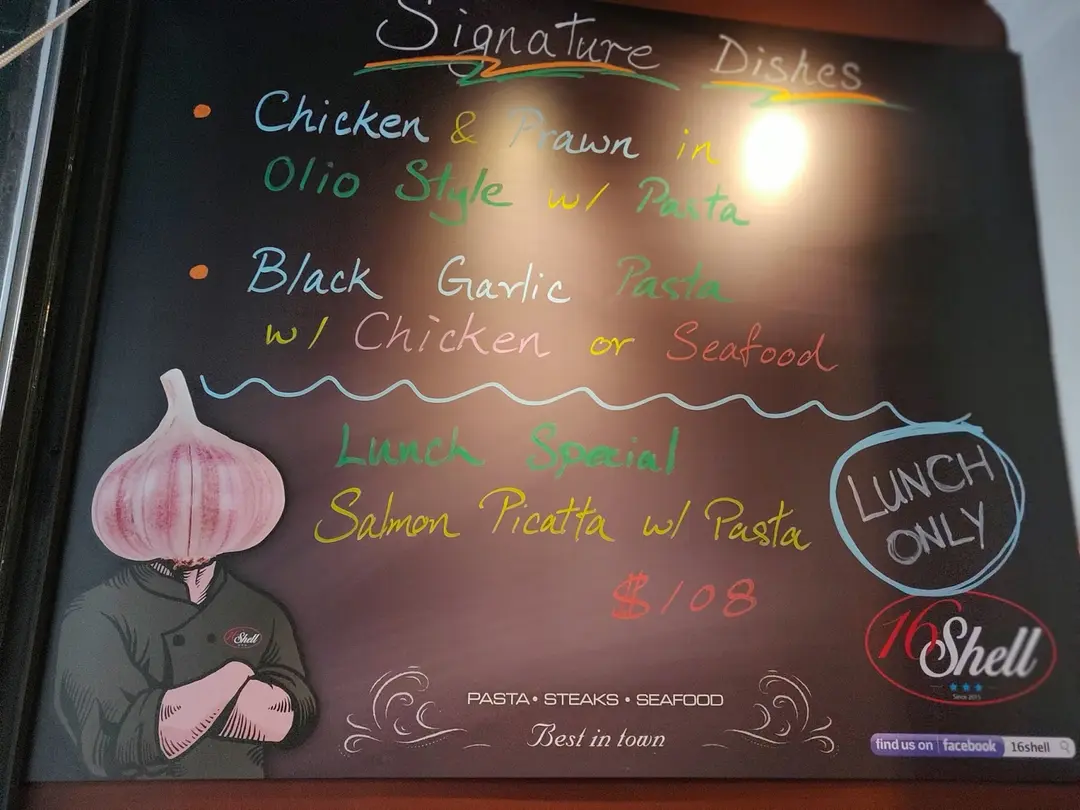 Signature Dishes
• Chicken & Prawn in
Olio Style w/ Pasta
• Black Garlic Pasta
w/ Chicken or Seafood
Lunch Special
Salmon Picatta w/ Pasta
$108
LUNCH
ONLY
16Shell
16Shell
Since 2015
PASTA • STEAKS • SEAFOOD
Best in town
find us on facebook 16shell